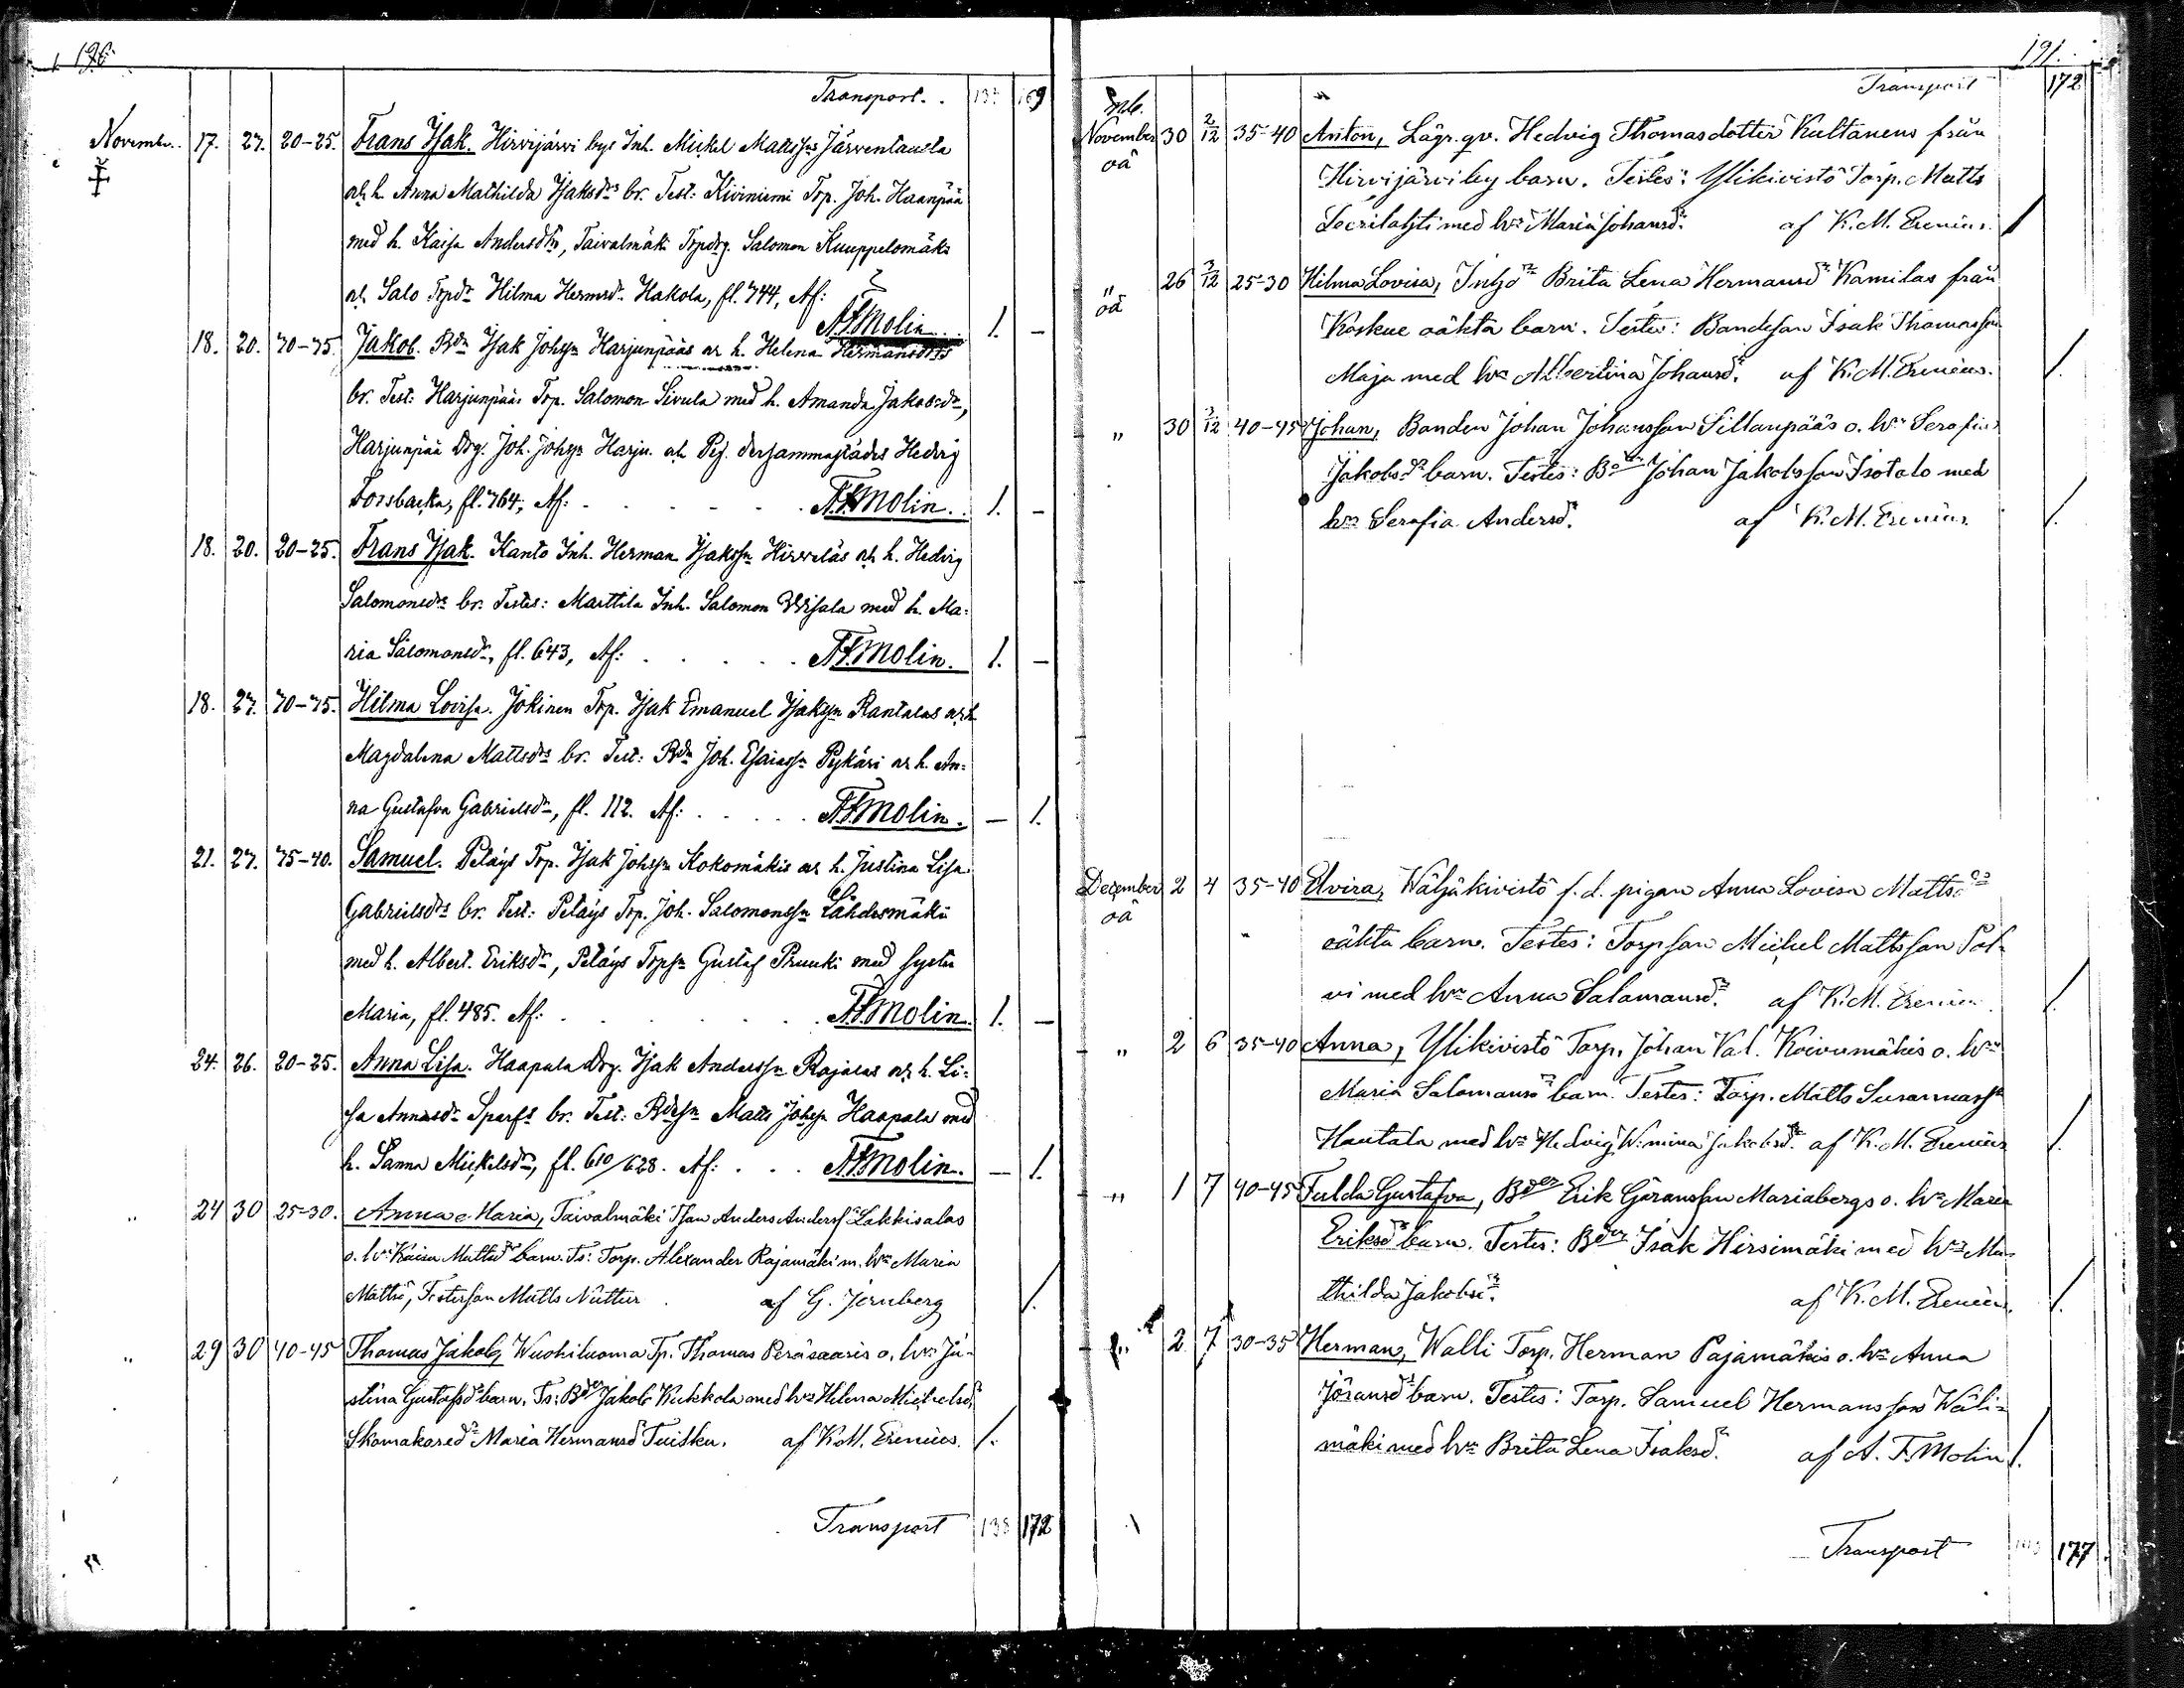 190.
Transport. . 169
Novembr. 17. 27. 20-25. Frans Isak. Hirvijärvi bys Inh. Mickel Mattssns Järventausta
och h. Anna Mathilda Isaksdrs br. Test: Kiviniemi Trp. Joh. Haanpää
med h. Kaisa Andersdtr, Taivalmäki Trpdrg. Salomon Kuuppelomäki
och Salo Trpdr Hilma Hermsdr Hakola, fl. 744, Af:
A.F. Molin. 1. —
18. 20. 70-75. Jakob. Bdn Isak Johssn Harjunpääs och h. Helena Hermansdrs
br. Test: Harjunpää Trp. Salomon Sivula med h. Amanda Jakobsdr,
Harjunpää Drg. Joh. Johssn Harju och Pig. dersammastädes Hedvig
Forsbacka, fl. 764, Af: . . . . . A.F. Molin. . 1. —
18. 20. 20-25. Frans Isak. Kanto Inh. Herman Isakssn Hirveläs och h. Hedvig
Salomonsdrs br. Testes: Marttila Inh. Salomon Wisala med h. Ma=
ria Salomonsdr, fl. 643, Af: . . . . . A.F. Molin. 1. —
18. 27. 70-75. Hilma Lovisa. Jokinen Trp. Isak Emanuel Isakssn Rantalas och h.
Magdalena Mattsdrs br. Test: Bdn Joh. Esaiassn Pykäri och h. An=
na Gustafva Gabrielsdr, fl. 112. Af: . . . . . A.F. Molin. — 1.
21. 27. 35-40. Samuel. Peläys Trp. Isak Johssn Kokomäkis och h. Justina Lisa
Gabrielsdrs br. Test: Peläys Trp. Joh. Salomonssn Lähdesmäki
med h. Albert. Eriksdr, Peläys Trpsn Gustaf Pruuki med syster
Maria, fl. 485. Af: . . . . . . A.F. Molin. 1. —
24. 26. 20-25. Anna Lisa. Haapala Drg. Isak Anderssn Rajalas och h. Li=
sa Annasdr Sparfs br. Test: Bdesn Matts Johssn Haapala med
h. Sanna Mickelsdr, fl. 610/628. Af: . . . A.F. Molin. — 1.
" 24 30 25-30. Anna Maria, Taivalmäki Tsan Anders Anderss Lakkisalas
o. hrs Kaisa Mattsdrs barn. Ts: Torp. Alexander Rajamäki m. hru Maria
Mattsdr, Fostersan Matts Nüttur af G. Jernberg 1.
" 29 30 40-45 Thomas Jakob, Wuohiluoma Tp. Thomas Peräsaaris o. hrs Ju-
stina Gustafsdrs barn. Ts: Bden Jakob Kukkola med hru Helena Michelsdr
Skomakaredr Maria Hermansdr Tuisku. af K.M. Erenius. 1.
Transport 172
191.
Transport 172
November 30 2/12 35-40 Anton, Lägr. qv. Hedvig Thomasdotter Kultanens från
oä Hirvijärvi by barn. Testes: Ylikivistö Torp. Matts
med hru Maria Johansdr. af K.M. Erenius. 1
" 26 3/12 25-30 Hilma Lovisa, Inhsdr Brita Lena Hermansdr Kamilas från
oä Koskue oäkta barn. Testes: Bandesan Isak Thomasson
Maja med hru Albertina Johansdr. af K.M. Erenius. 1.
" 30 3/12 40-45 Johan, Banden Johan Johansson Sillanpääs o. hrs Serafia
Jakobsdrs barn. Testes: Bden Johan Jakobsson Isotalo med
hru Serafia Andersdr. af K.M. Erenius. 1.
December 2 4 35-40 Elvira, Wäljäkivistö f.d. pigan Anna Lovisa Mattsdrs
oä oäkta barn. Testes: Torpsan Michel Mattsson Pol-
vi med hru Anna Salomansdr. af K.M. Erenius 1.
" 2 6 35-40 Anna, Ylikivistö Torp. Johan Val. Koivumäkis o. hrs
Maria Salomansdrs barn. Testes: Torp. Matts Susannassn
Hautala med hru Hedvig W:mina Jakobsdr. af K.M. Erenius 1.
" 1 7 40-45 Fulda Gustafva, Bden Erik Göransson Mariabergs o. hrs Maria
Eriksdrs barn. Testes: Bden Isak Hirsimäki med hru Ma-
thilda Jakobsdr. af K.M. Erenius. 1.
" 2 7 30-35 Herman, Walli Torp. Herman Pajamäkis o. hrs Anna
Jöransdrs barn. Testes: Torp. Samuel Hermansson Wäli-
mäki med hru Brita Lena Isaksdr. af A.F. Molin 1.
Transport 177